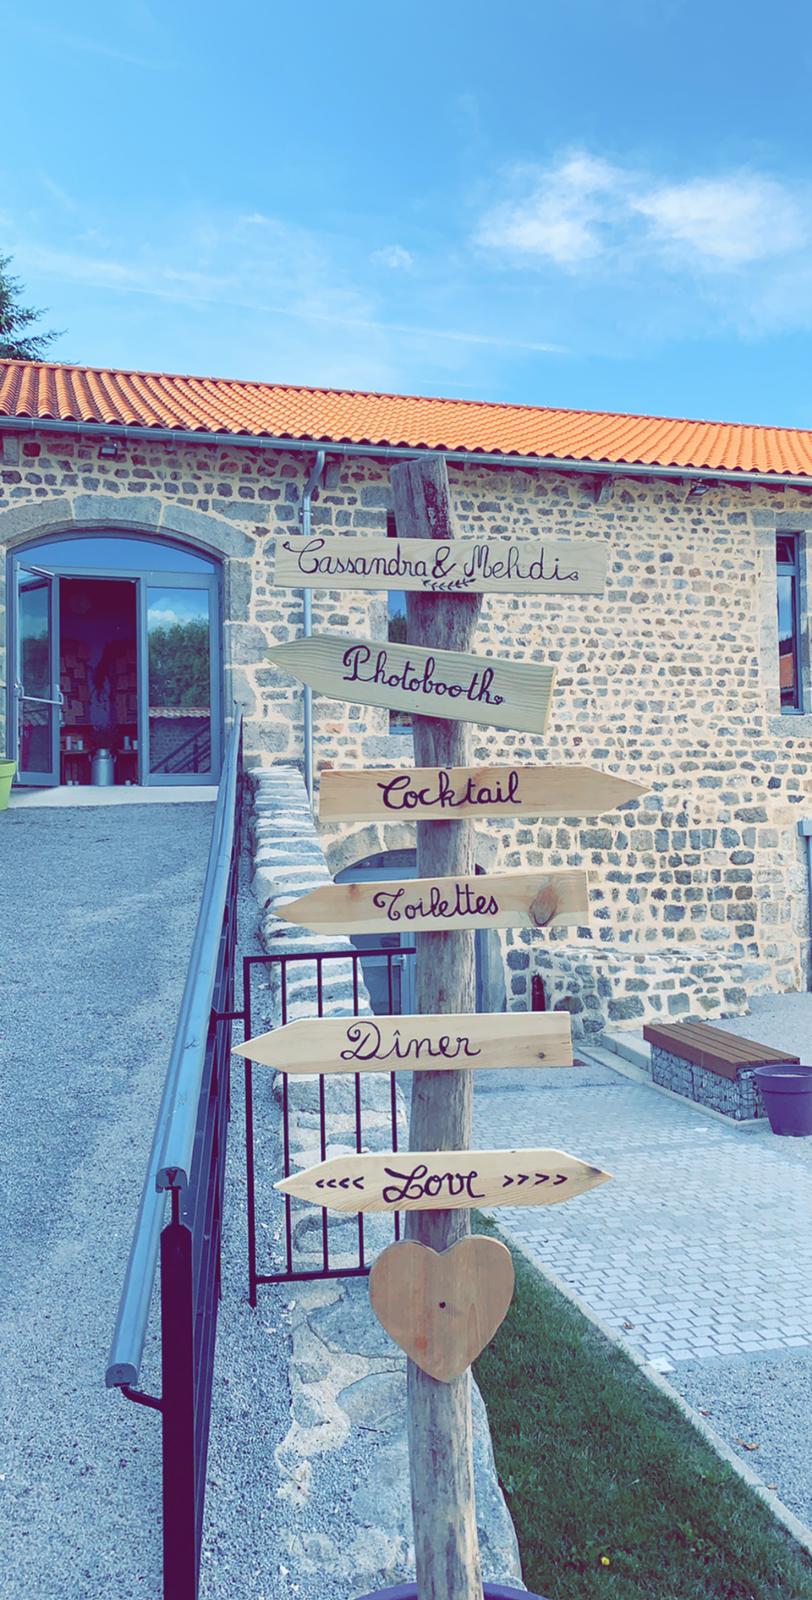 Cassandra & Mehdi
Photobooth
Cocktail
Toilettes
Dîner
<<<< Love >>>>